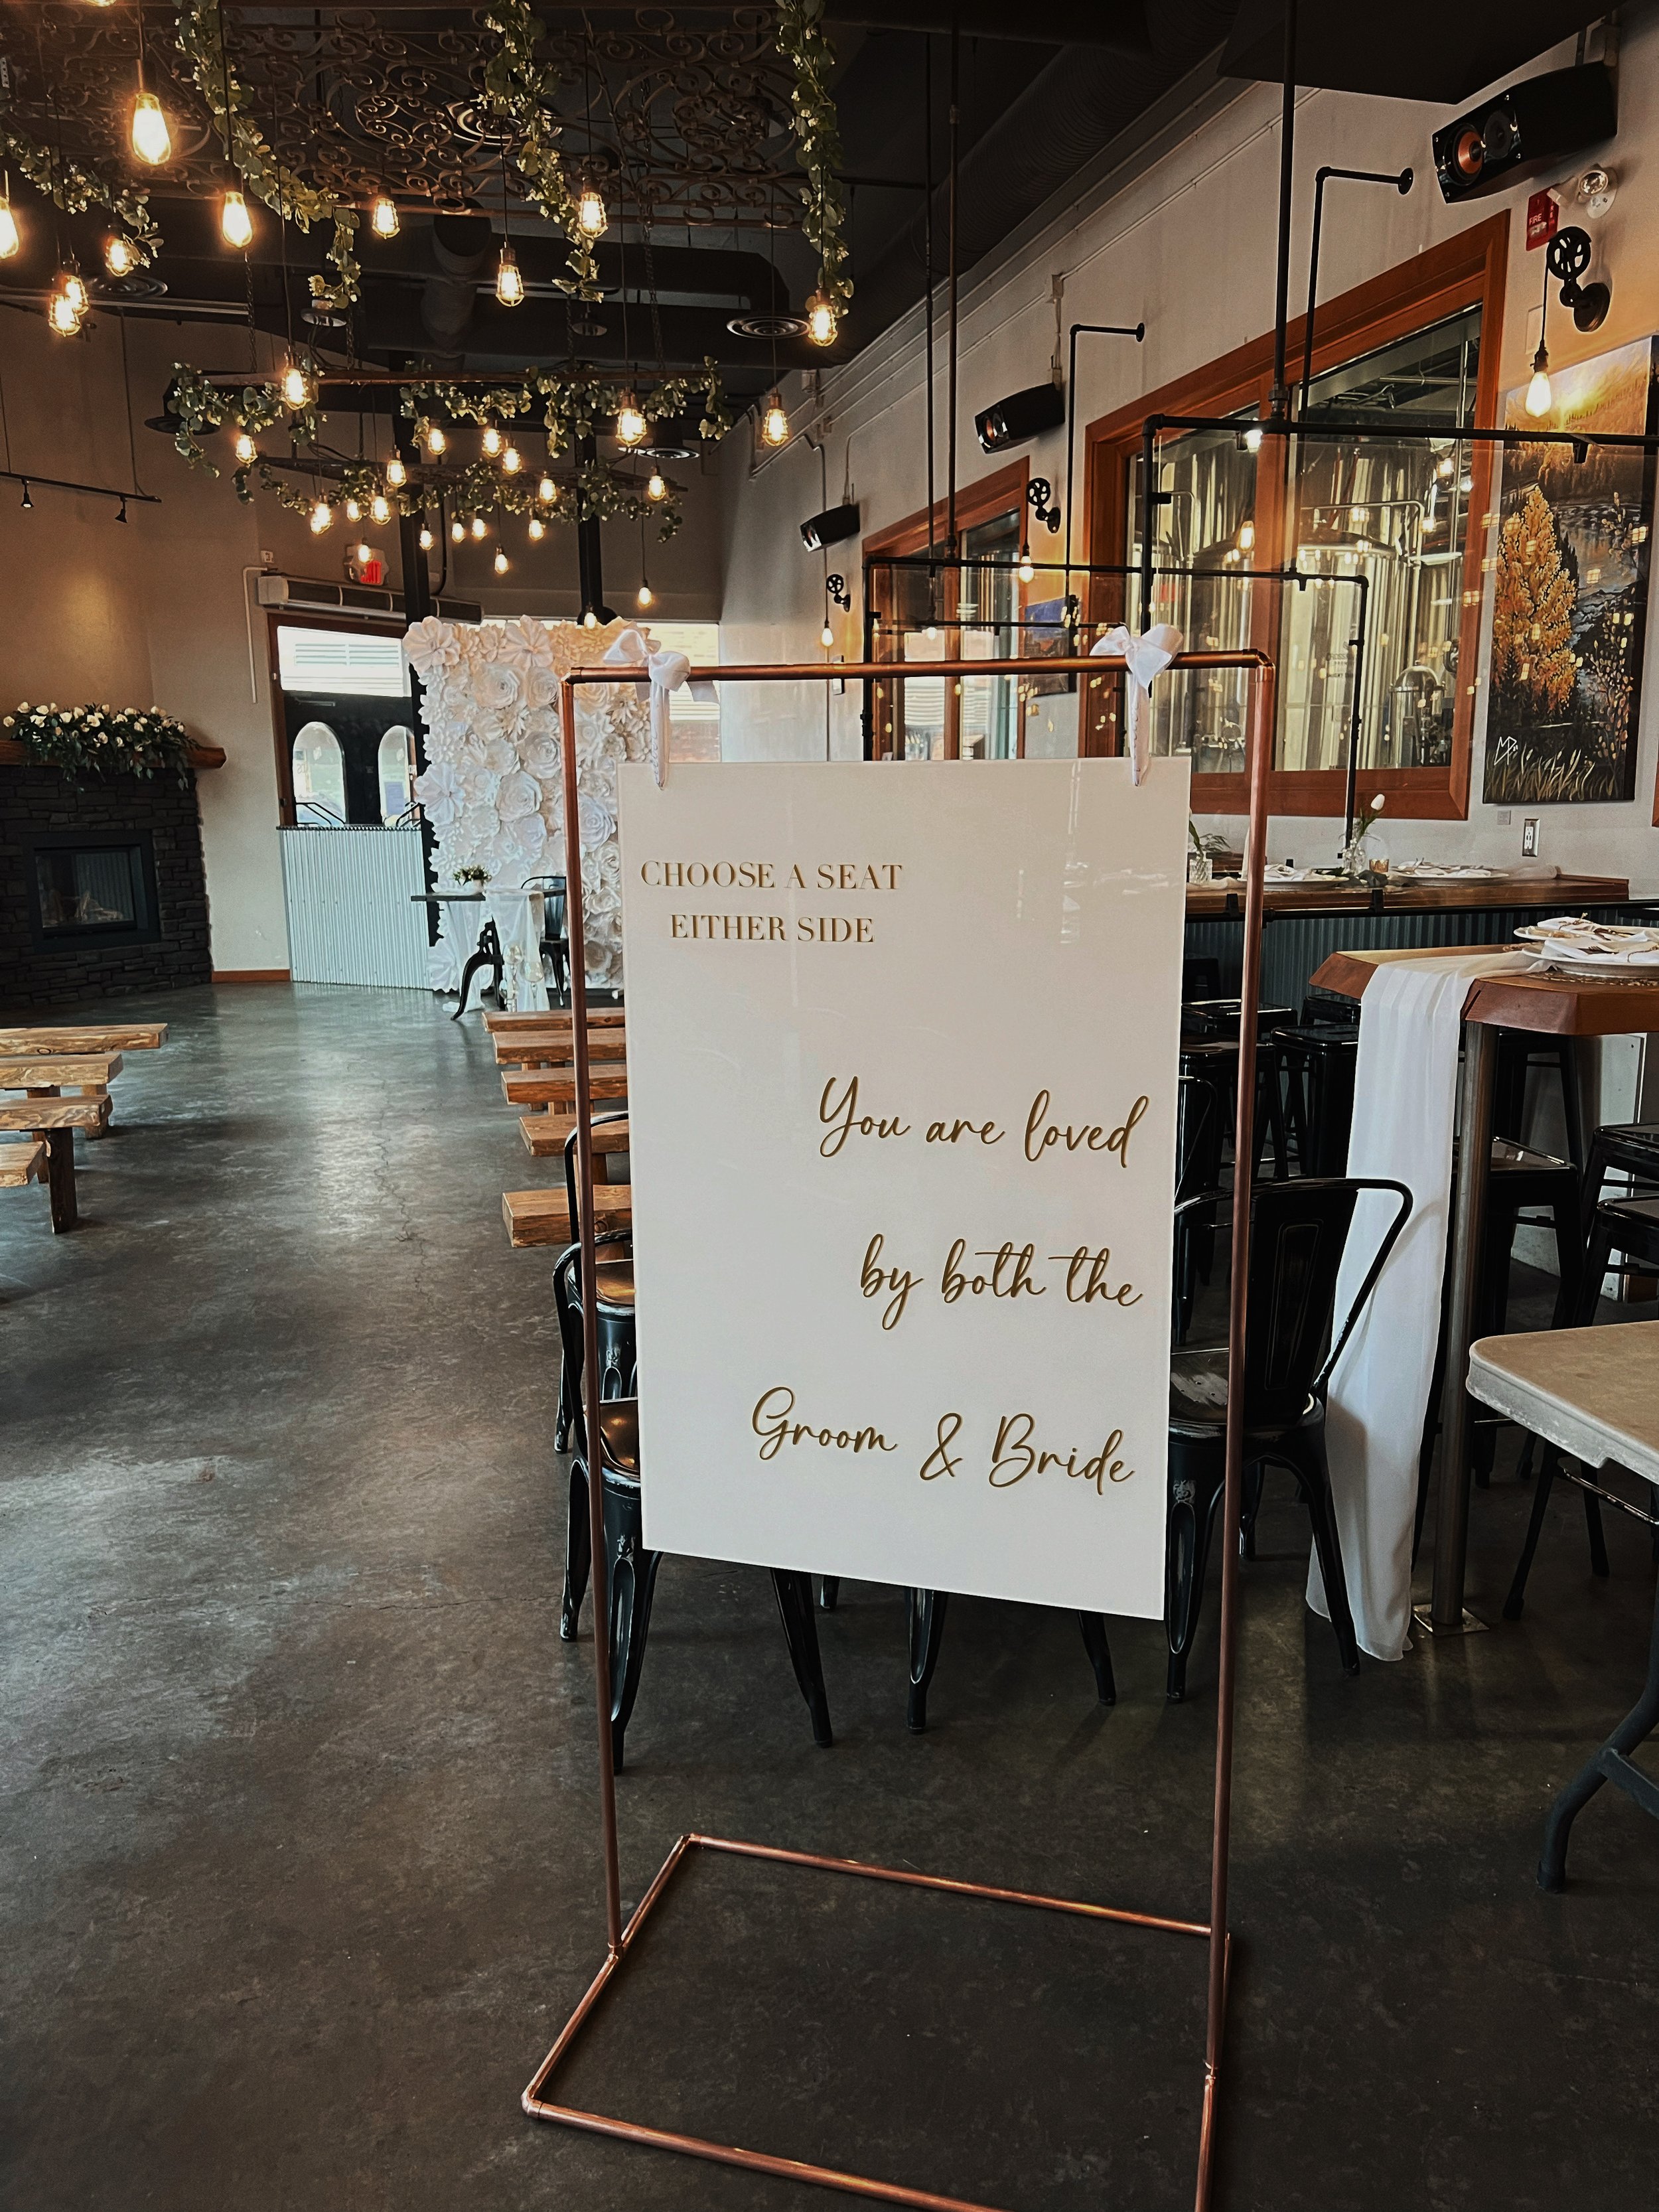 FIRE
EXIT
CHOOSE A SEAT
EITHER SIDE
You are loved
by both the
Groom & Bride